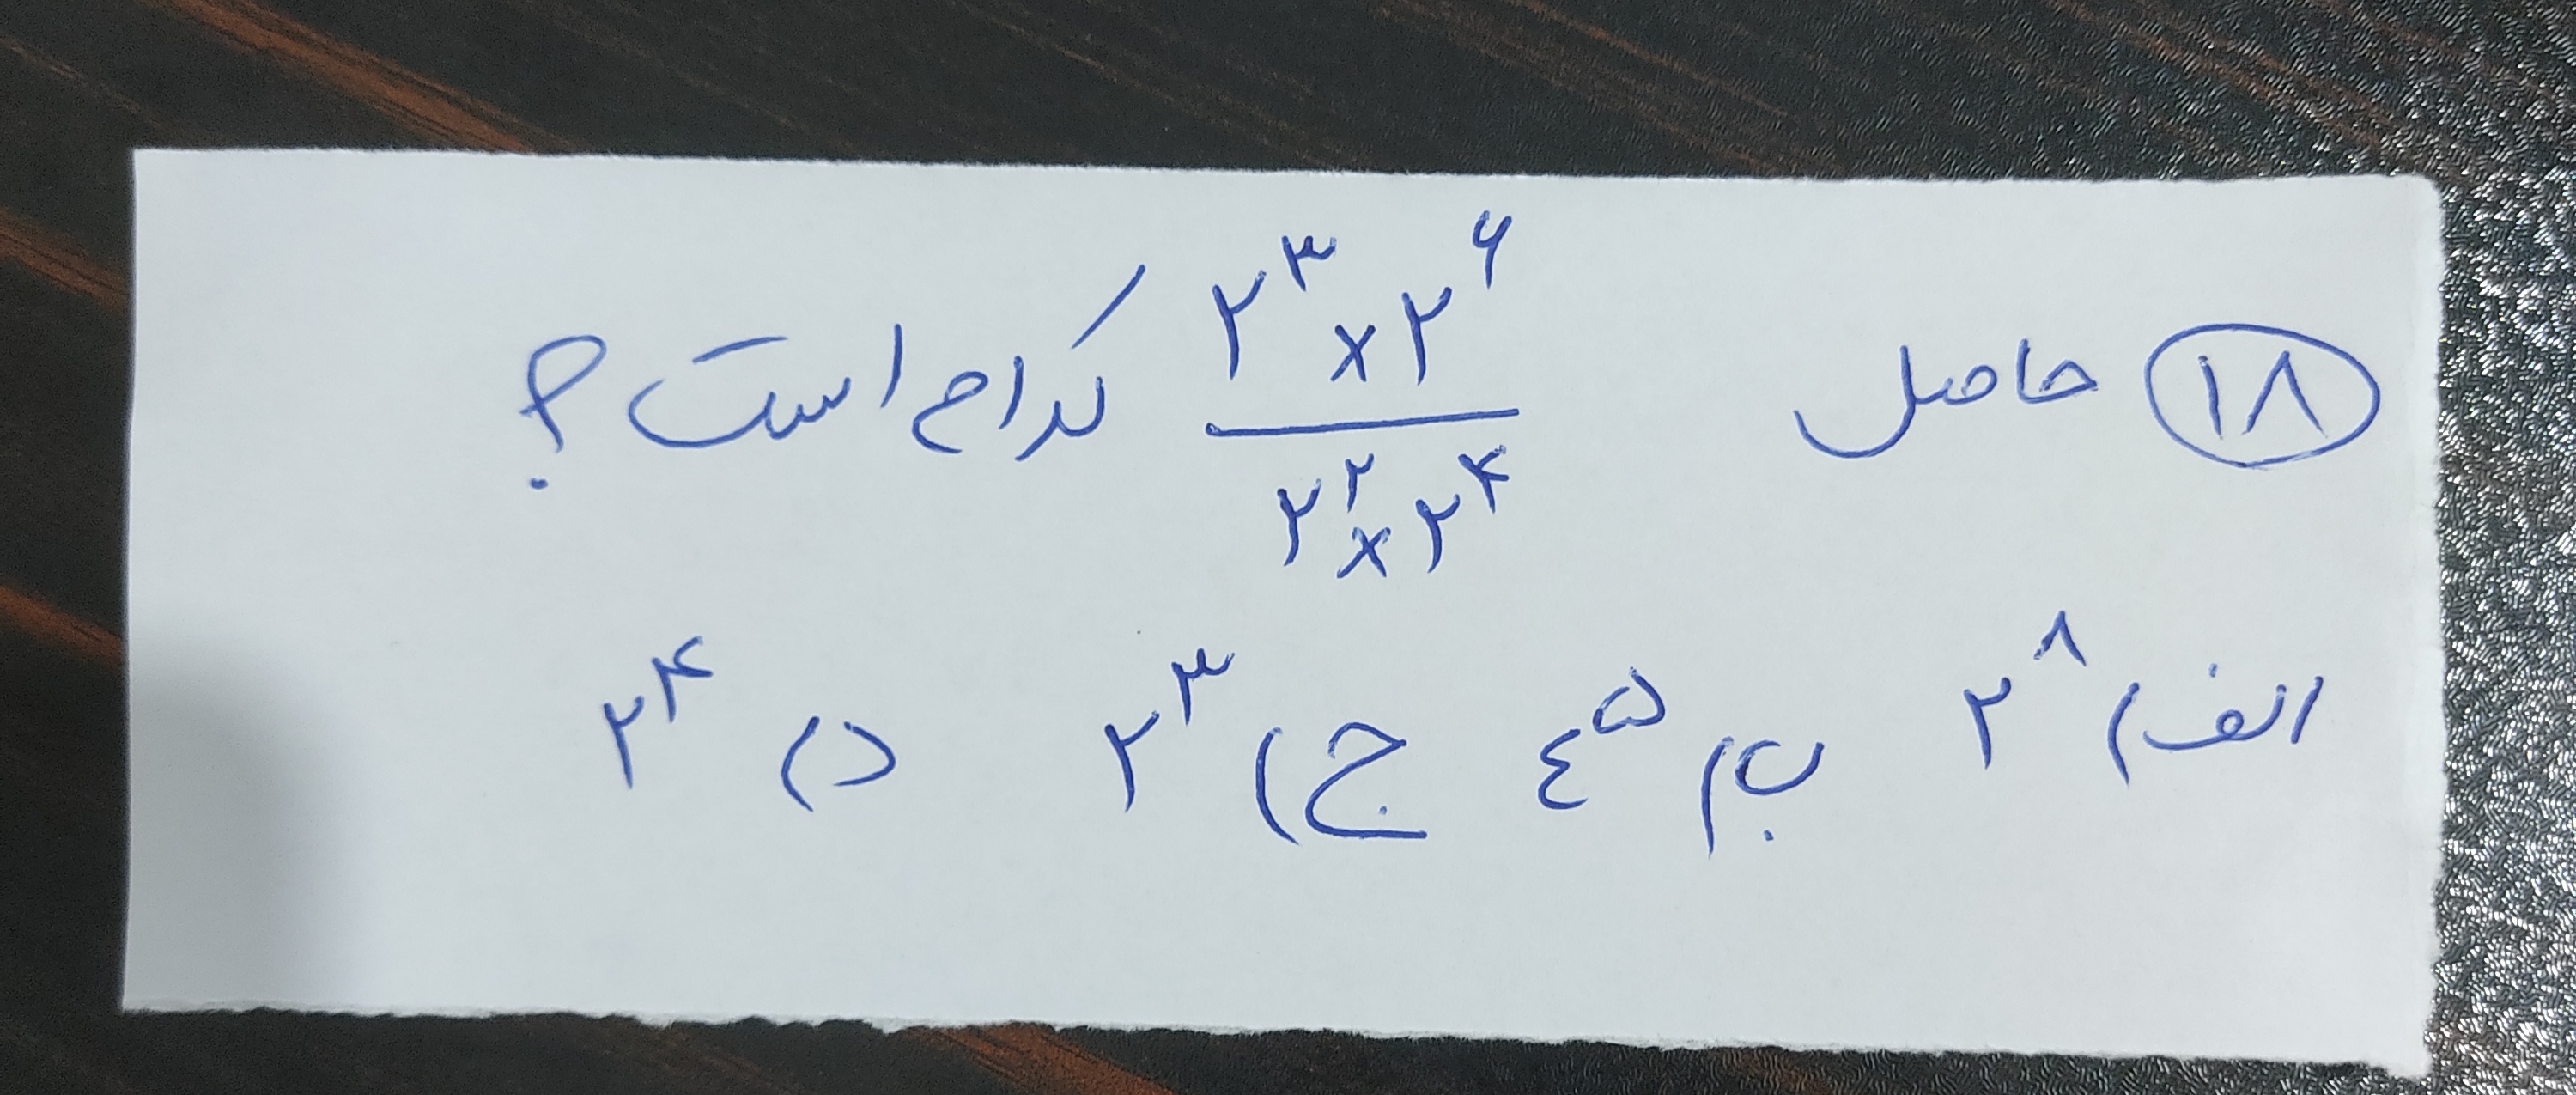 ۱۸ حاصل ۲^۳ × ۲^۶ / ۲^۲ × ۲^۴ کدام است؟
الف) ۲^۸ ب) ٤^۵ ج) ۲^۳ د) ۲^۴